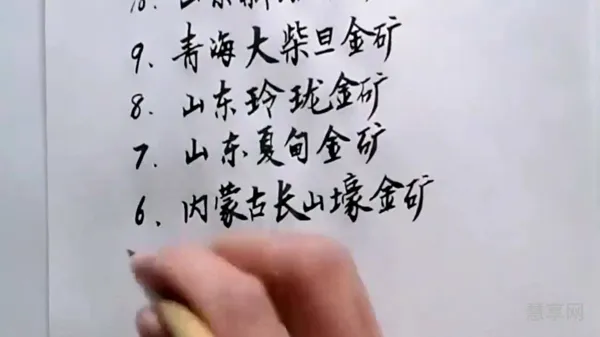 9、青海大柴旦金矿
8、山东玲珑金矿
7、山东夏甸金矿
6、内蒙古长山壕金矿